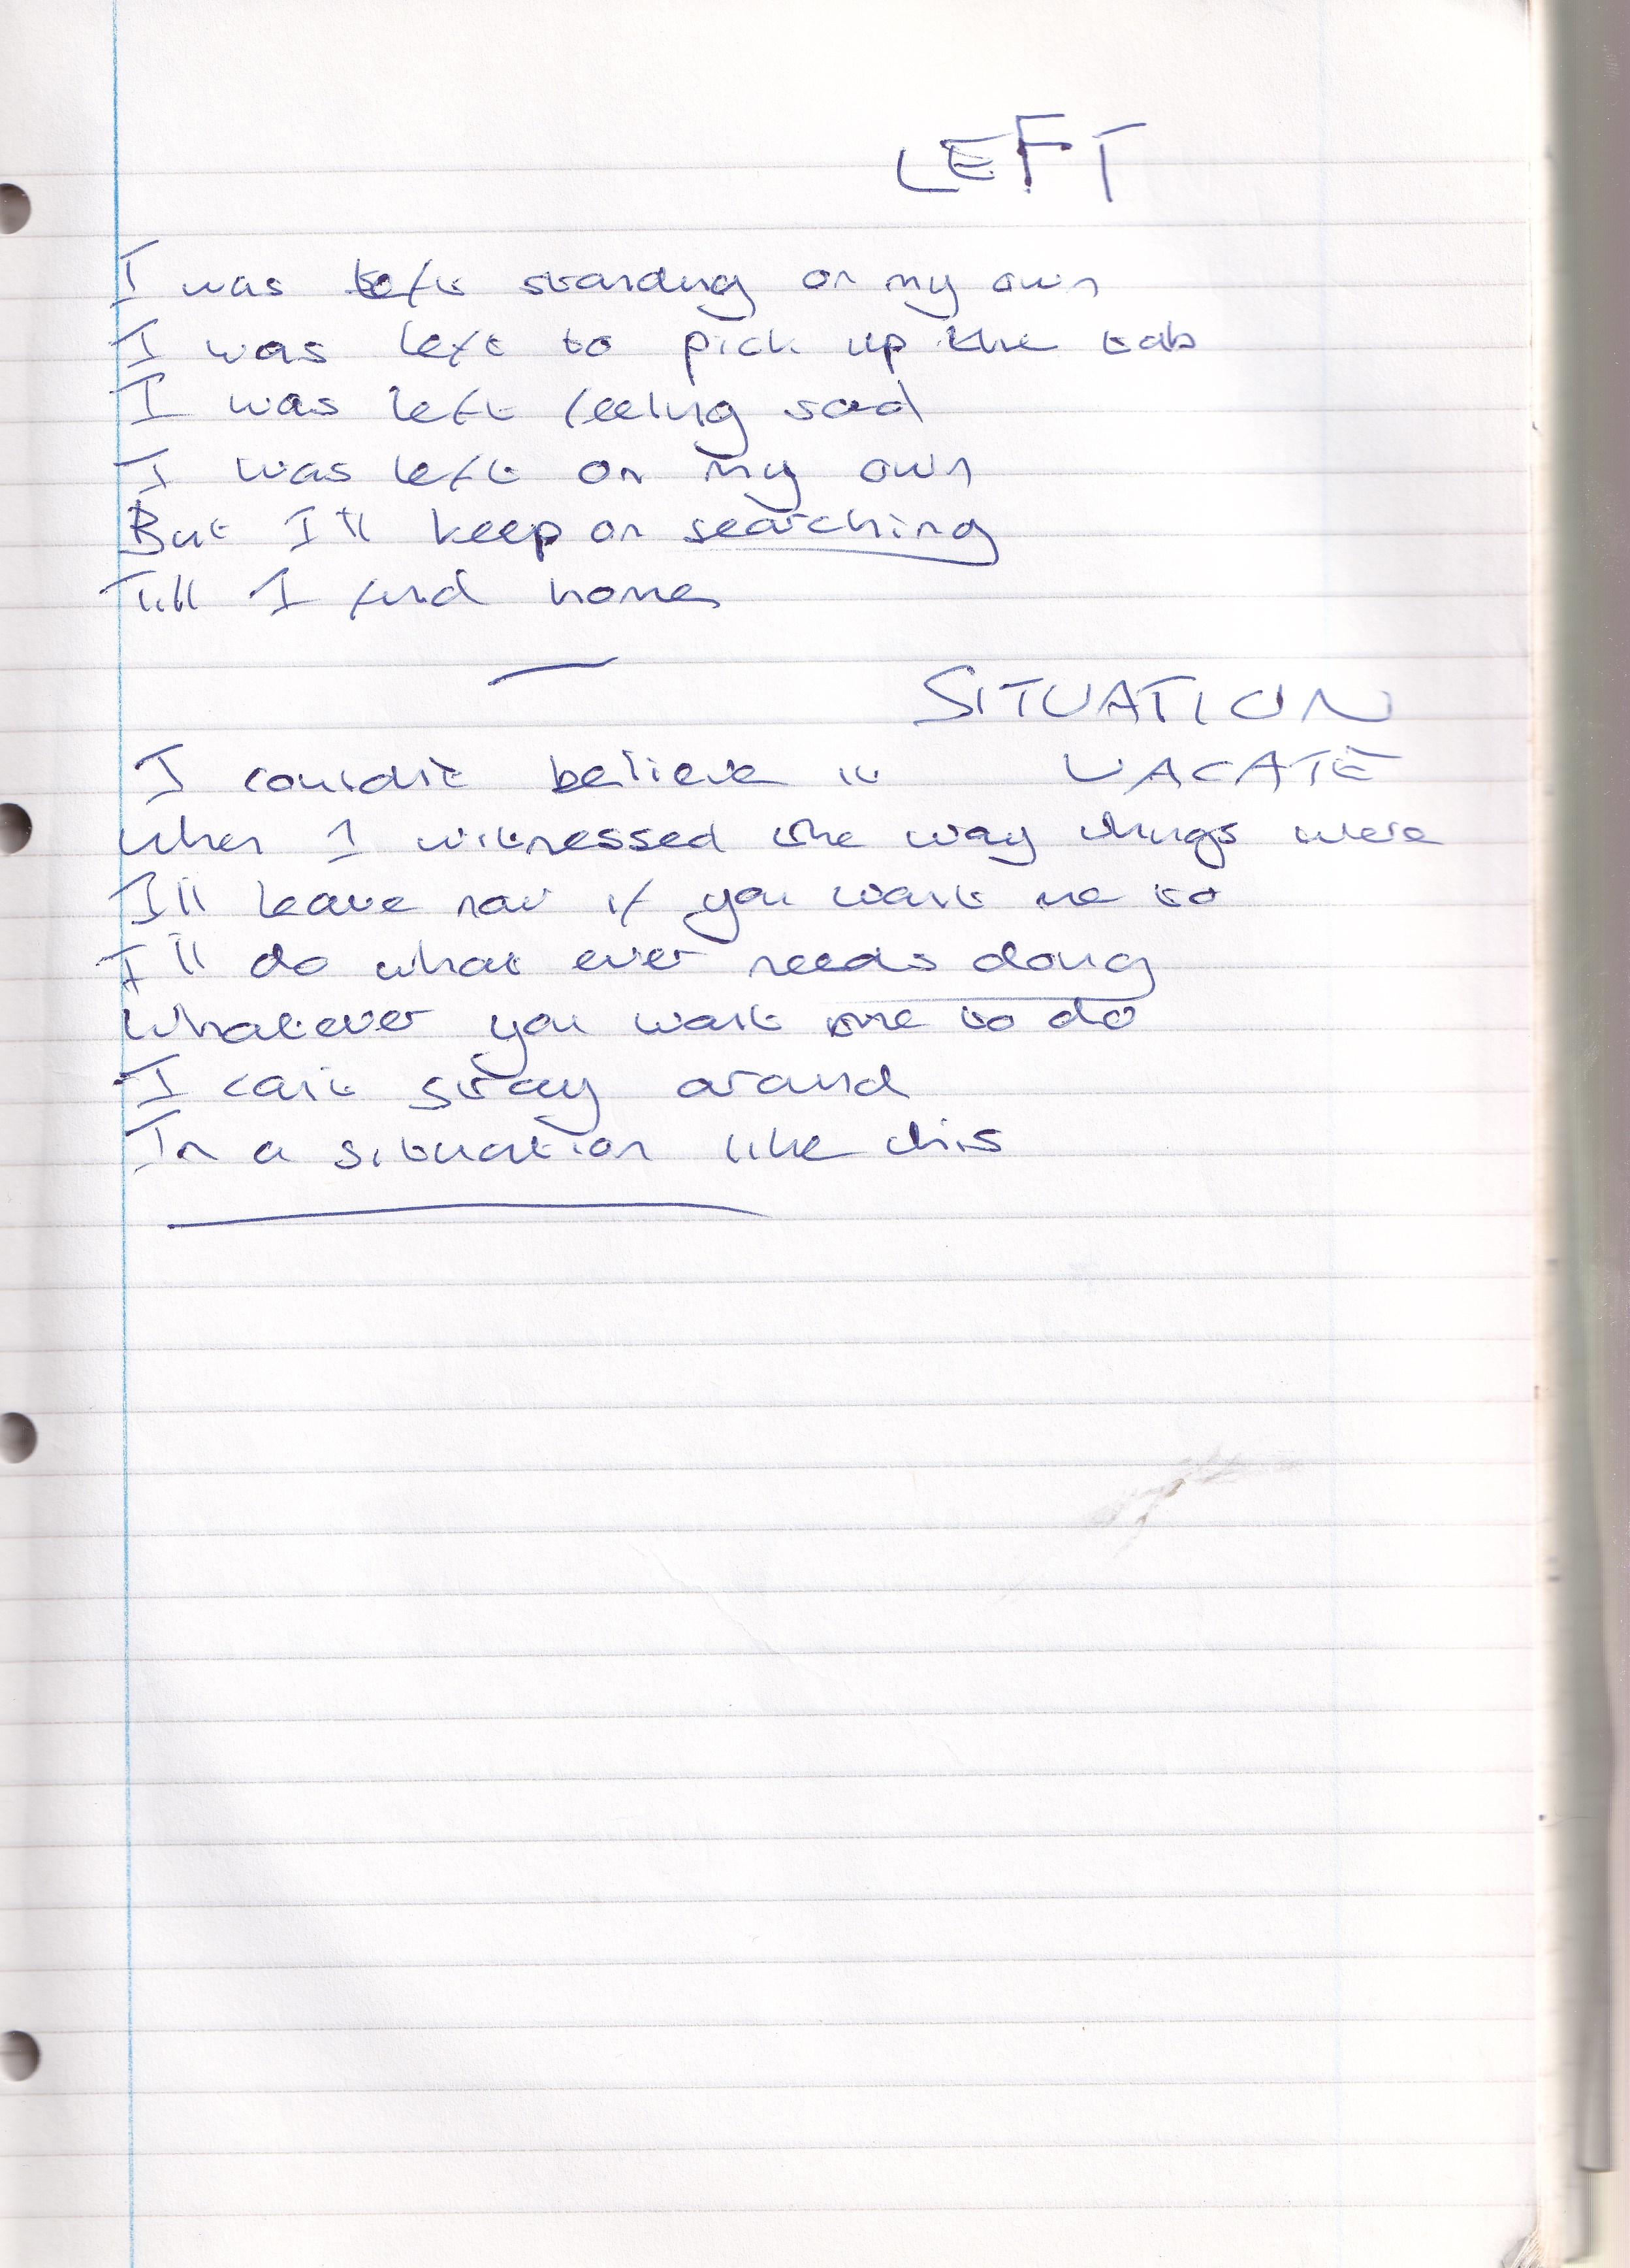 LEFT
I was left standing on my own
I was left to pick up the tab
I was left feeling sad
I was left on my own
But I'll keep on searching
Till I find home
SITUATION
VACATE
I couldn't believe it
When I witnessed the way things were
I'll leave now if you want me to
I'll do what ever needs doing
Whatever you want me to do
I can't stay around
In a situation like this